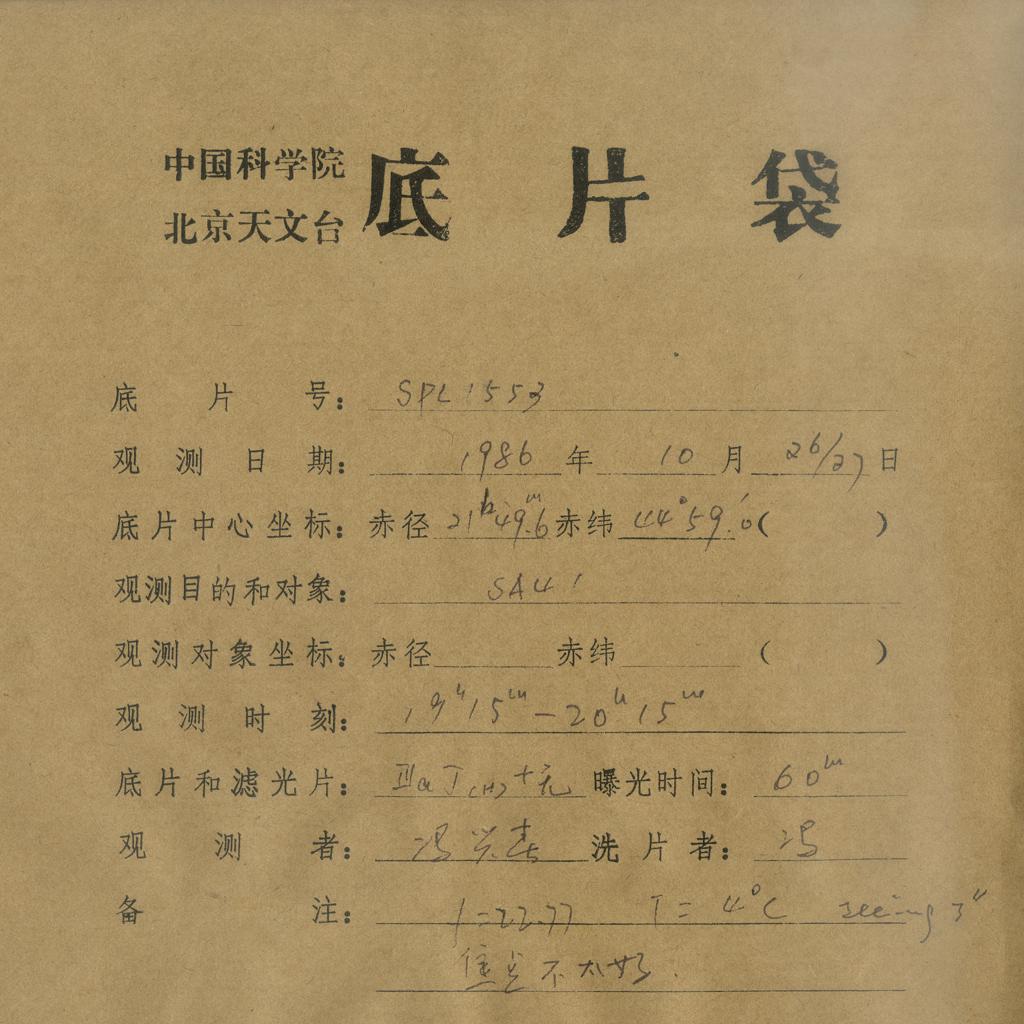 中国科学院
北京天文台
底片袋
底片号： SPL 1553
观测日期： 1986 年 10 月 26/27 日
底片中心坐标： 赤径 21ʰ49.6ᵐ 赤纬 44°59.′0 （ ）
观测目的和对象： SA41
观测对象坐标： 赤径 赤纬 （ ）
观测时刻： 19ʰ15ᵐ—20ʰ15ᵐ
底片和滤光片： ⅢaJ(H)+无 曝光时间： 60ᵐ
观测者： 冯兴春 洗片者： 冯
备注： f=22.77 T=4°C seeing 3″
焦点不太好.